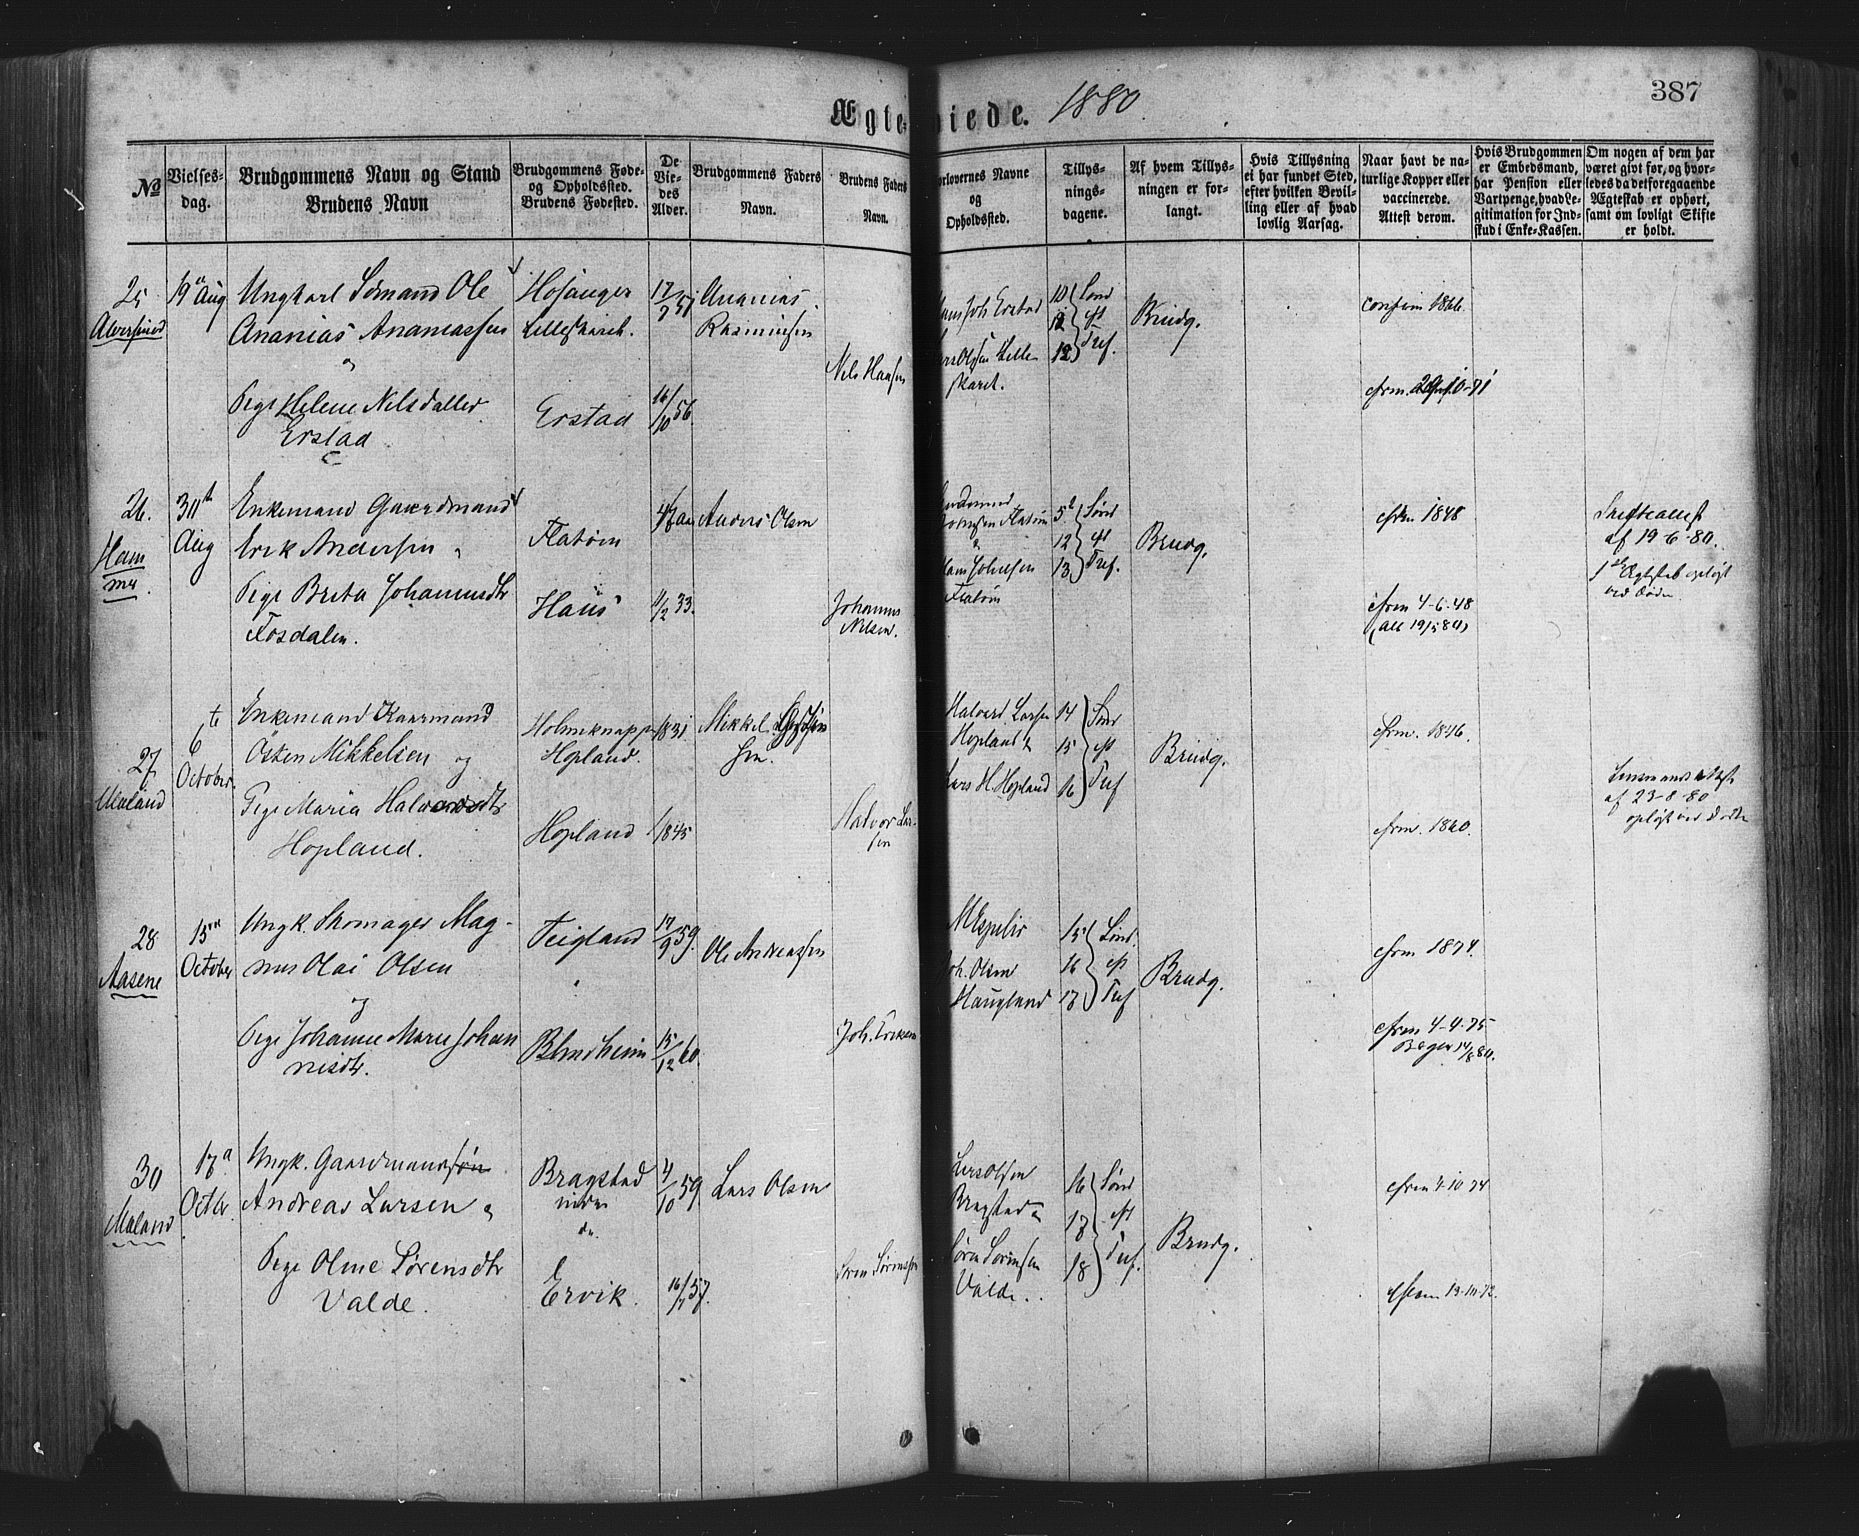 387
Ægte- viede. 1880.
No
Vielses-
dag.
Brudgommens Navn og Stand
Brudens Navn
Brudgommens Føde-
og Opholdssted.
Brudens Fødested.
De
Vie-
des
Alder.
Brudgommens Faders
Navn.
Brudens Faders
Navn.
orlovernes Navne
og
Opholdssted.
Tillys-
nings-
dagene.
Af hvem Tillys-
ningen er for-
langt.
Hvis Tillysning
ei har fundet Sted,
efter hvilken Bevil-
ling eller af hvad
lovlig Aarsag.
Naar havt de na-
turlige Kopper eller
vaccinerede.
Attest derom.
Hvis Brudgommen
er Embedsmand,
har Pension eller
Vartpenge, hvad Le-
gitimation for Ind-
skud i Enke-Kassen.
Om nogen af dem har
været givt før, og hvor-
ledes da det foregaaende
Ægteskab er ophørt,
samt om lovligt Skifte
er holdt.
25
Alversund
19 Aug
Ungkarl Sømand Ole
Ananias Ananiassen
Pige Helene Nilsdatter
Erstad
Hosanger
Lilleskaret
Erstad
16/10 56.
Ananias
Rasmussen
Nils Hansen
10
12
Sønd
eft
Tref.
Brudg.
confirm 1866.
26.
Hammer
Aug
Enkemand Gaardmand
Erik Andersen
Pige Brita Johannesdtr
Fosdalen.
Flatøen
Haus
11/2 33.
Anders Olsen
Johannes
Nilsen.
Flatøen
12
13
Sønd
eft
Tref.
Brudg.
cfrm 1848
cfrm 4-6-48
Skifteattest
af 19-6-80.
1ste Ægteskab opløst
ved Døden
27
Meland
6te
October
Enkemand Kaarmand
Østen Mikkelsen og
Pige Maria Halvardsdtr
Hopland.
Hopland.
Hopland
1831
1845
Mikkel
Halvor Lar-
sen
Halvard Larsen
Hopland &
Lars H. Hopland
14
15
16
Sønd
eft
Tref
Brudg.
cfrm. 1846.
cfrm. 1860.
af 23-8-80
opløst ved Døden
28
Aasene
15
October
Ungk. Skomager Mag-
nus Olai Olsen
og
Pige Johanne Marie Johan
nisdtr.
Teigland
Blindheim
17/9 59.
15/12 60.
Ole Andreassen
Joh. Eriksen
Joh. Olsen
Haugland
15
16
17
Sønd.
eft
Tref
Brudg.
cfrm 1874.
cfrm 4-4-75
30
Meland
17
Octbr.
Ungk. Gaardmandssøn
Andreas Larsen
Pige Oline Sørensdtr
Valde.
Bragstad
nedre
Ervik.
4/10 59
Lars Olsen
Søren Sørensen
Lars Olsen
Bragstad
Søren Sørensen
Valde.
16
17
18
Sønd
eft
Tref.
Brudg.
cfrm 4-10-74